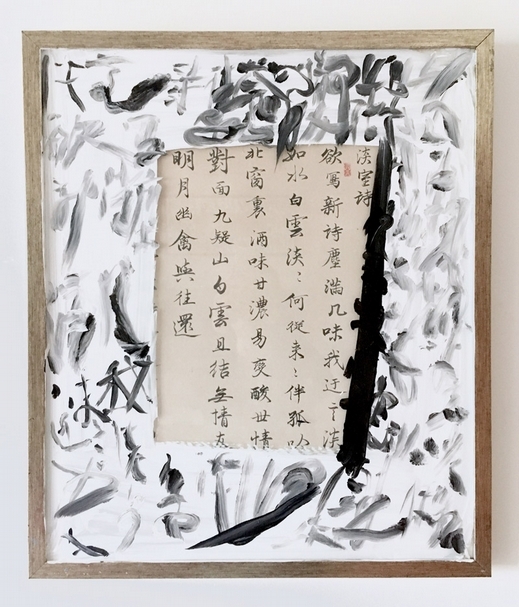 淡室詩
欲寫新詩塵滿几味我迂淡
如水白雲淡〻何從來〻伴孤吟
北窗裏酒味甘濃易變酸世情
對面九疑山白雲且結無情友
明月幽禽與往還
味